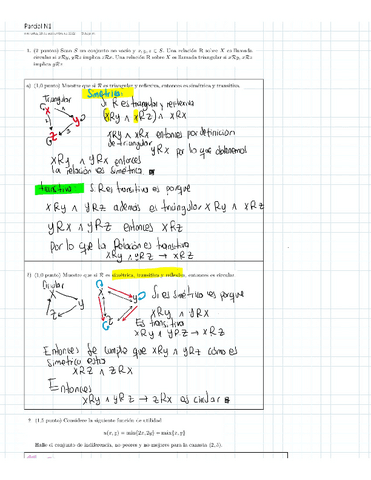 Parcial N1
1. (2 puntos) Sean S un conjunto no vacío y x, y, z ∈ S. Una relación R sobre X es llamada
circular si xRy, yRz implica zRx. Una relación R sobre X es llamada triangular si xRy, xRz
implica yRz.
a) (1,0 puntos) Muestre que si R es triangular y reflexiva, entonces es simétrica y transitiva.
Simétrica:
Triangular
Si R es triangular y reflexiva
x
y
z
(xRy ∧ xRz) ∧ xRx
xRy ∧ xRx entonces por definición
de triangular
yRx por lo que obtenemos
xRy ∧ yRx entonces
la relación es simétrica
transitiva
S. R es transitiva es porque
xRy ∧ yRz además es triangular xRy ∧ xRz
yRx ∧ yRz entonces xRz
Por lo que la Relación es transitiva
xRy ∧ yRz → xRz
b) (1,0 puntos) Muestre que si R es simétrica, transitiva y reflexiva, entonces es circular
Circular
x
y
z
x
y
z
Si es simétrica es porque
xRy ∧ yRx
Es transitiva
xRy ∧ yRz → xRz
Entonces Se cumple que xRy ∧ yRz como es
simetrica
xRz ∧ zRx
Entonces
xRy ∧ yRz → zRx es circular
2. (1,5 puntos) Considere la siguiente función de utilidad
u(x, y) = min{2x, 2y} = min{x, y}
Halle el conjunto de indiferencia, no peores y no mejores para la canasta (2, 3).